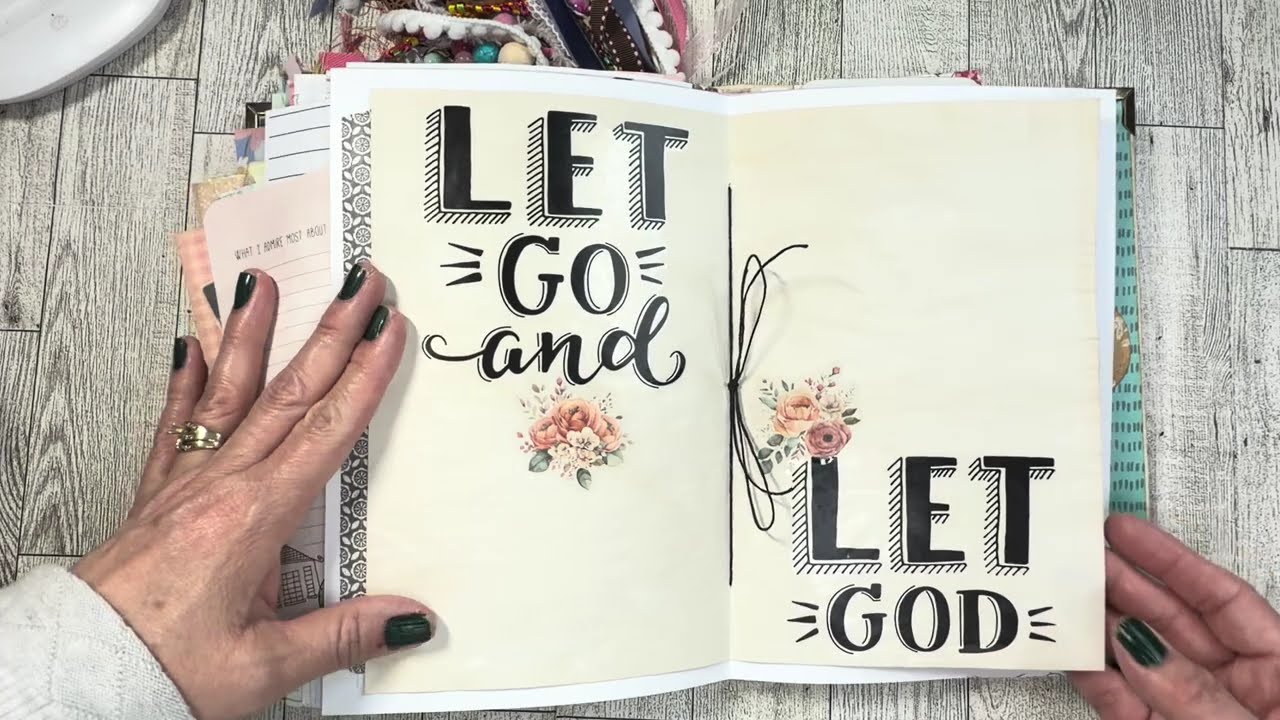 LET
GO
and
LET
GOD
WHAT I ADMIRE MOST ABOUT